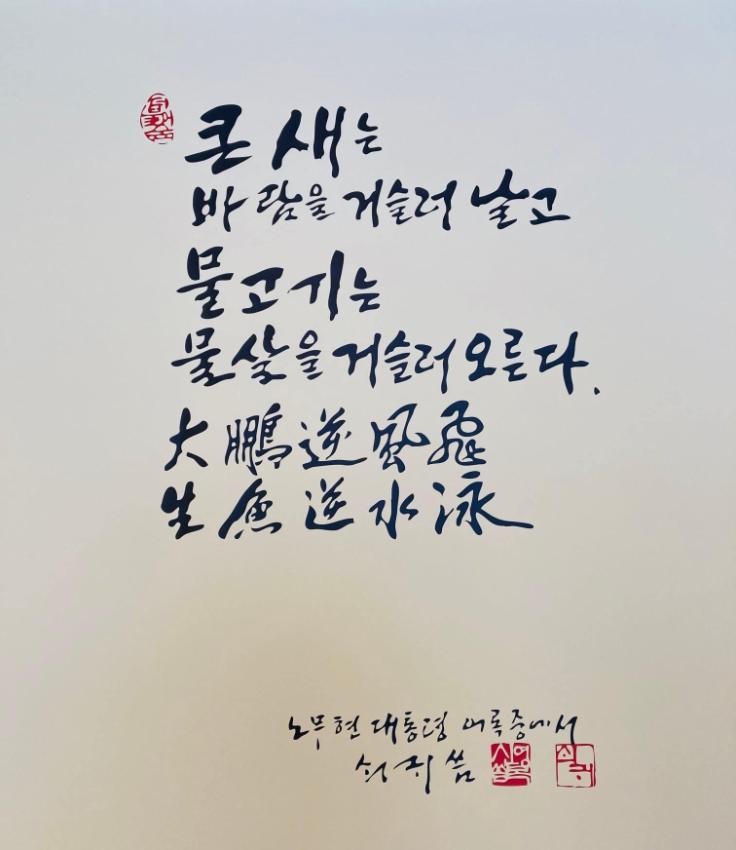 큰 새는
바람을 거슬러 날고
물고기는
물살을 거슬러 오른다.
大鵬逆風飛
生魚逆水泳
노무현 대통령 어록중에서
씀